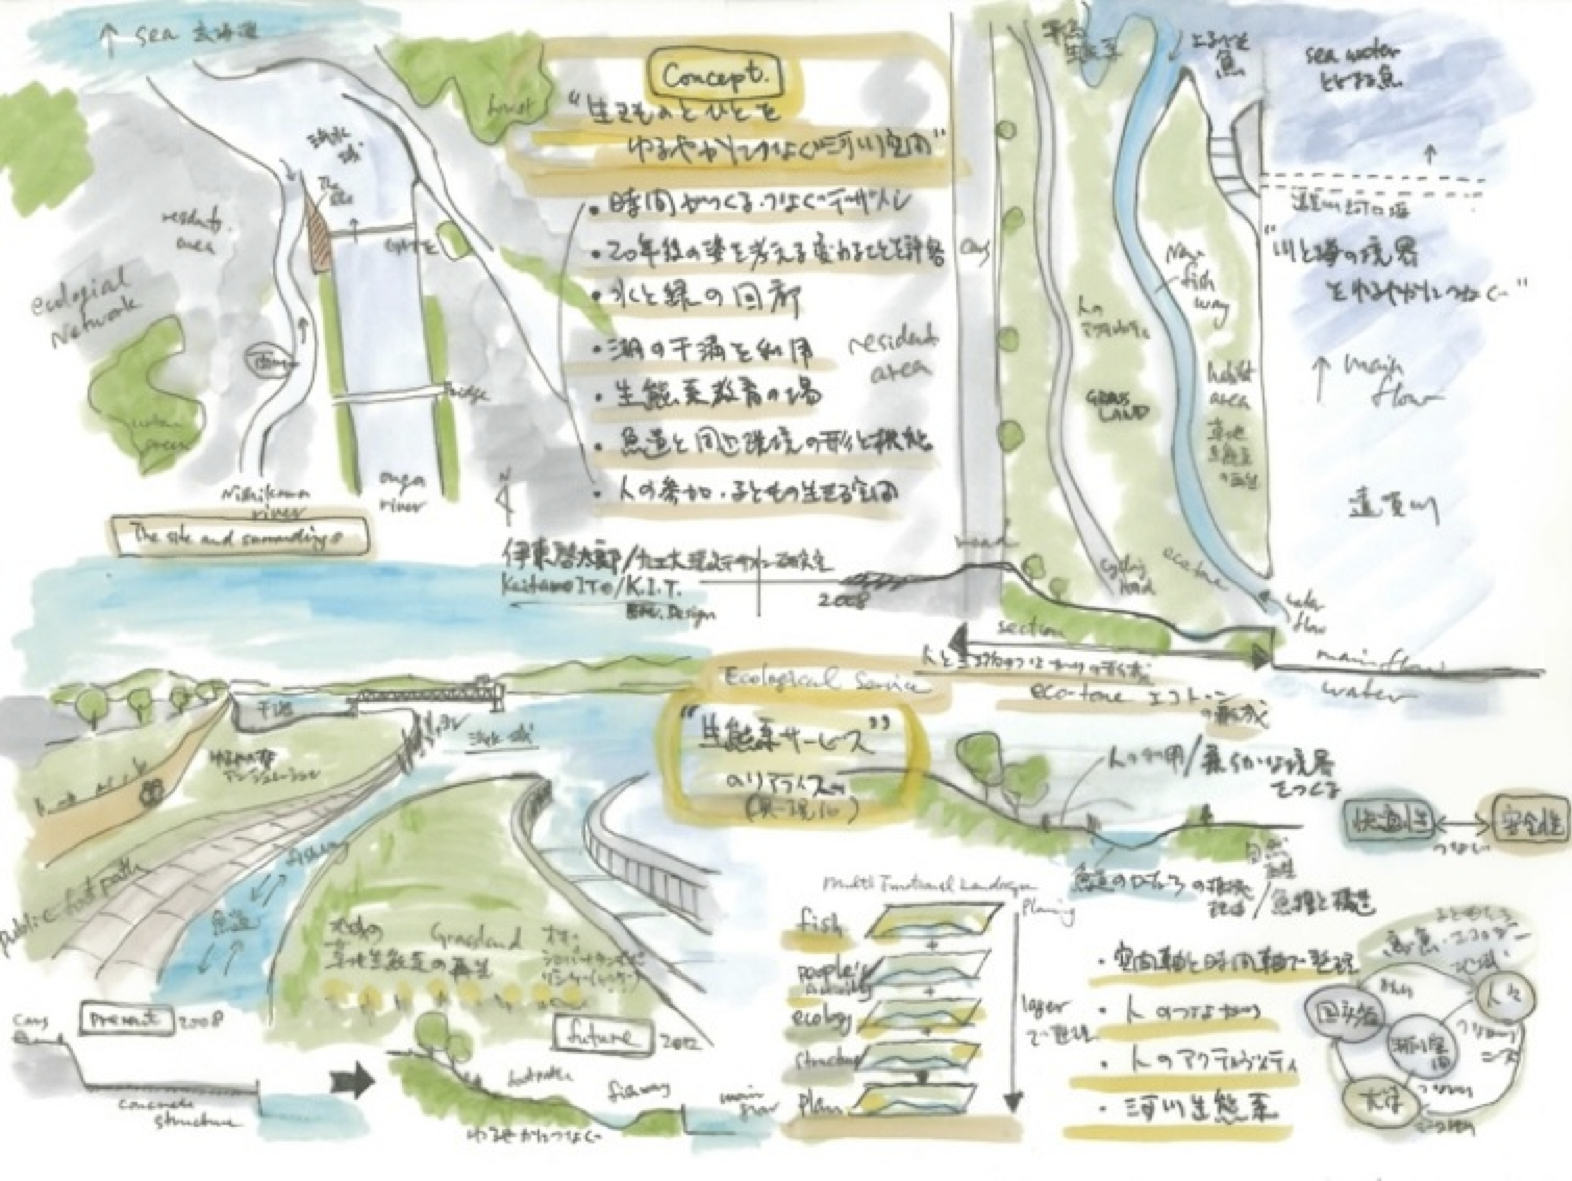 ↑ sea 玄海灘
forest
Concept.
"生きものとひとを
ゆるやかにつなぐ"河川空間"
・時間がつくる・つなぐデザイン
・20年後の姿を考える変わることを許容
・水と緑の回廊
・潮の干満を利用
・生態系教育の場
・魚道と周辺環境の形と機能
・人の参加・子どもの生きる空間
The site
residents area
GATE
ecological Network
urban green
Bridge
Nishikawa river
onga river
N
The site and surroundings
resident area
伊東啓太郎/九工大環境デザイン研究室
Keitaro ITO/K.I.T.
Env. Design
2008
sea water
とどまる魚
遠賀川河口堰
"川と海の境界
をゆるやかにつなぐ"
↑ main flow
遠賀川
Cars
New fish way
人の
アクティビティ
GRASS LAND
habitat area
草地
生態系
の再生
ecotone
cycling road
road
water flow
section
main flow
water
eco-tone エコトーン
の形成
Ecological Service
"生態系サービス"
のリアライズ
(具現化)
干潟
汽水域
ゆるやかな
アンジュレーション
public foot path
fishway
魚道
地域の
草地生態系の再生
Grassland
Present 2008
future 2012
cars
concrete structure
footpath
fishway
main flow
ゆるやかにつなぐ
人の利用/柔らかな境界
をつくる
快適性 ↔ 安全性
つなぐ
Multi Functional Landscape
Planning
fish
+
people's activity
+
ecology
+
structure
plan
layer
で整理
・空間軸と時間軸で整理
・人のつながり
・人のアクティビティ
・河川生態系
人々
河川空間